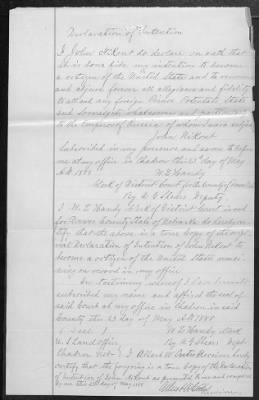 Declaration of Intention
I John Nikont do declare on oath that
it is bona fide my intention to become
a citizen of the United States and to renounce
and abjure forever all allegiance and fidelity
to all and any foreign Prince, Potentate, State
and Sovereignty whatsoever and particularly
to the Emperor of whom I was subject
John Nikont
Subscribed in my presence and sworn to before
me at my office in Chadron this 23d day of May
A.D. 1888 W E Handy
Clerk of District Court for the County of
By Deputy
I W. E. Handy Clerk of District Court in and
for Dawes County State of Nebraska do hereby cer-
tify that the above is a true copy of the origi-
nal Declaration of Intention of John Nikont to
become a citizen of the United States remain-
ing on record in my office.
In testimony whereof I have hereunto
subscribed my name and affixed the seal of
said Court at my office in Chadron in said
County the 23 day of May A.D. 1888
Seal W E Handy Clerk
U S Land Office By Dept.
Chadron Neb I Receiver hereby
certify that the foregoing is a true copy of the Declaration
of Intention of John Nikont as presented to me and compared
by me this day of May 1888
Receiver